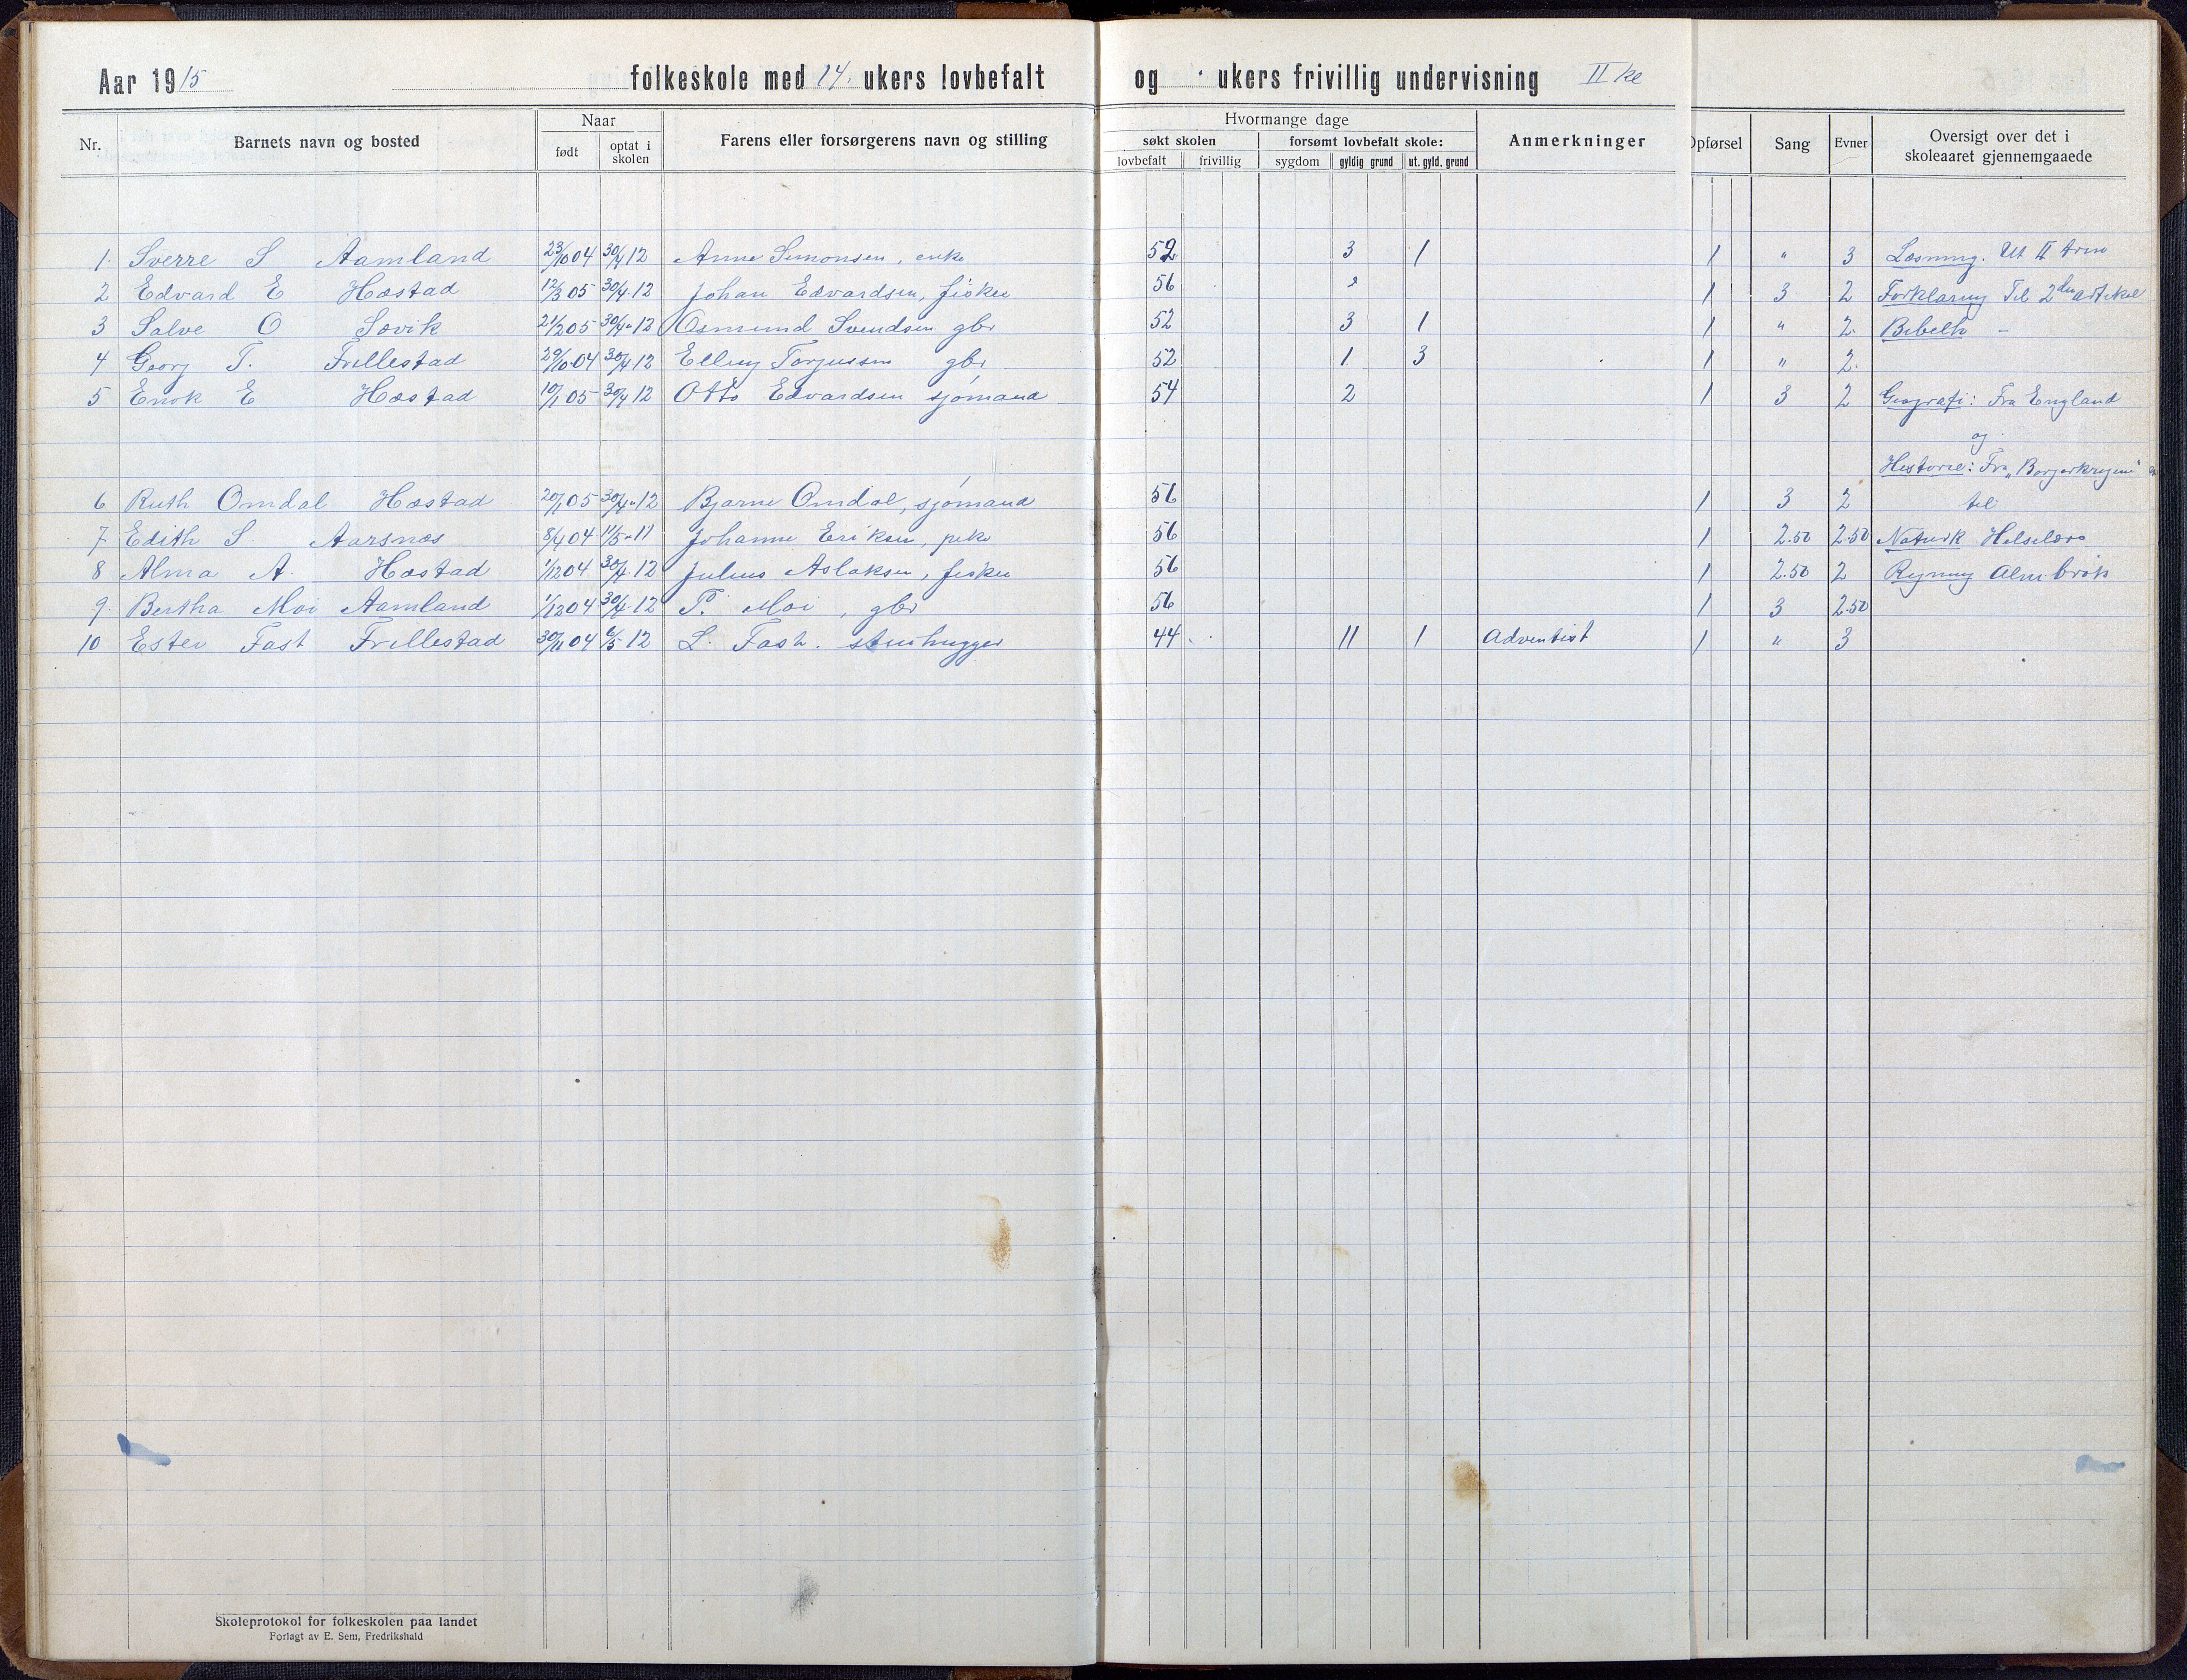 Aar 1915 folkeskole med 14. ukers lovbefalt og ukers frivillig undervisning II kl
Nr. Barnets navn og bosted Naar Farens eller forsørgerens navn og stilling Hvormange dage Anmerkninger Opførsel Sang Evner Oversigt over det i skoleaaret gjennemgaaede
født optat i skolen søkt skolen forsømt lovbefalt skole:
lovbefalt frivillig sygdom gyldig grund ut. gyld. grund
1. Sverre S Aamland 23/10 04 30/4 12 Anne Simonsen, enke 52 3 1 1 " 3 Læsning. Ut II
2 Edvard E Hæstad 12/3 05 30/4 12 Johan Edvardsen, fisker 56 2 1 3 2 Forklaring Til 2den artikel
3 Salve O Søvik 21/2 05 30/4 12 Osmund Svendsen gbr 52 3 1 1 " 2. Bibelh –
4 Georg T. Frillestad 29/10 04 30/4 12 Elling Torjussen gbr 52 1 3 1 " 2.
5 Enok E Hæstad 10/1 05 30/4 12 Otto Edvardsen sjømand 54 2 1 3 2 Geografi: Fra England
og
Historie: Fra "Borgerkrigene"
6 Ruth Omdal Hæstad 20/1 05 30/4 12 Bjarne Omdal, sjømand 56 1 3 2 til
7 Edith S. Aarsnæs 8/4 04 11/5 11 Johanne Eriksen, pike 56 1 2.50 2.50 Naturk Helselære
8 Alma A. Hæstad 1/12 04 30/4 12 Julius Aslaksen, fisker 56 1 2.50 2 Regning Alm brøk
9. Bertha Moi Aamland 1/12 04 30/4 12 T. Moi, gbr 56 1 3 2.50
10 Ester Fast Frillestad 30/11 04 6/5 12 L. Fast. stenhugger 44 11 1 Adventist 1 " 3
Skoleprotokol for folkeskolen paa landet
Forlagt av E. Sem, Fredrikshald